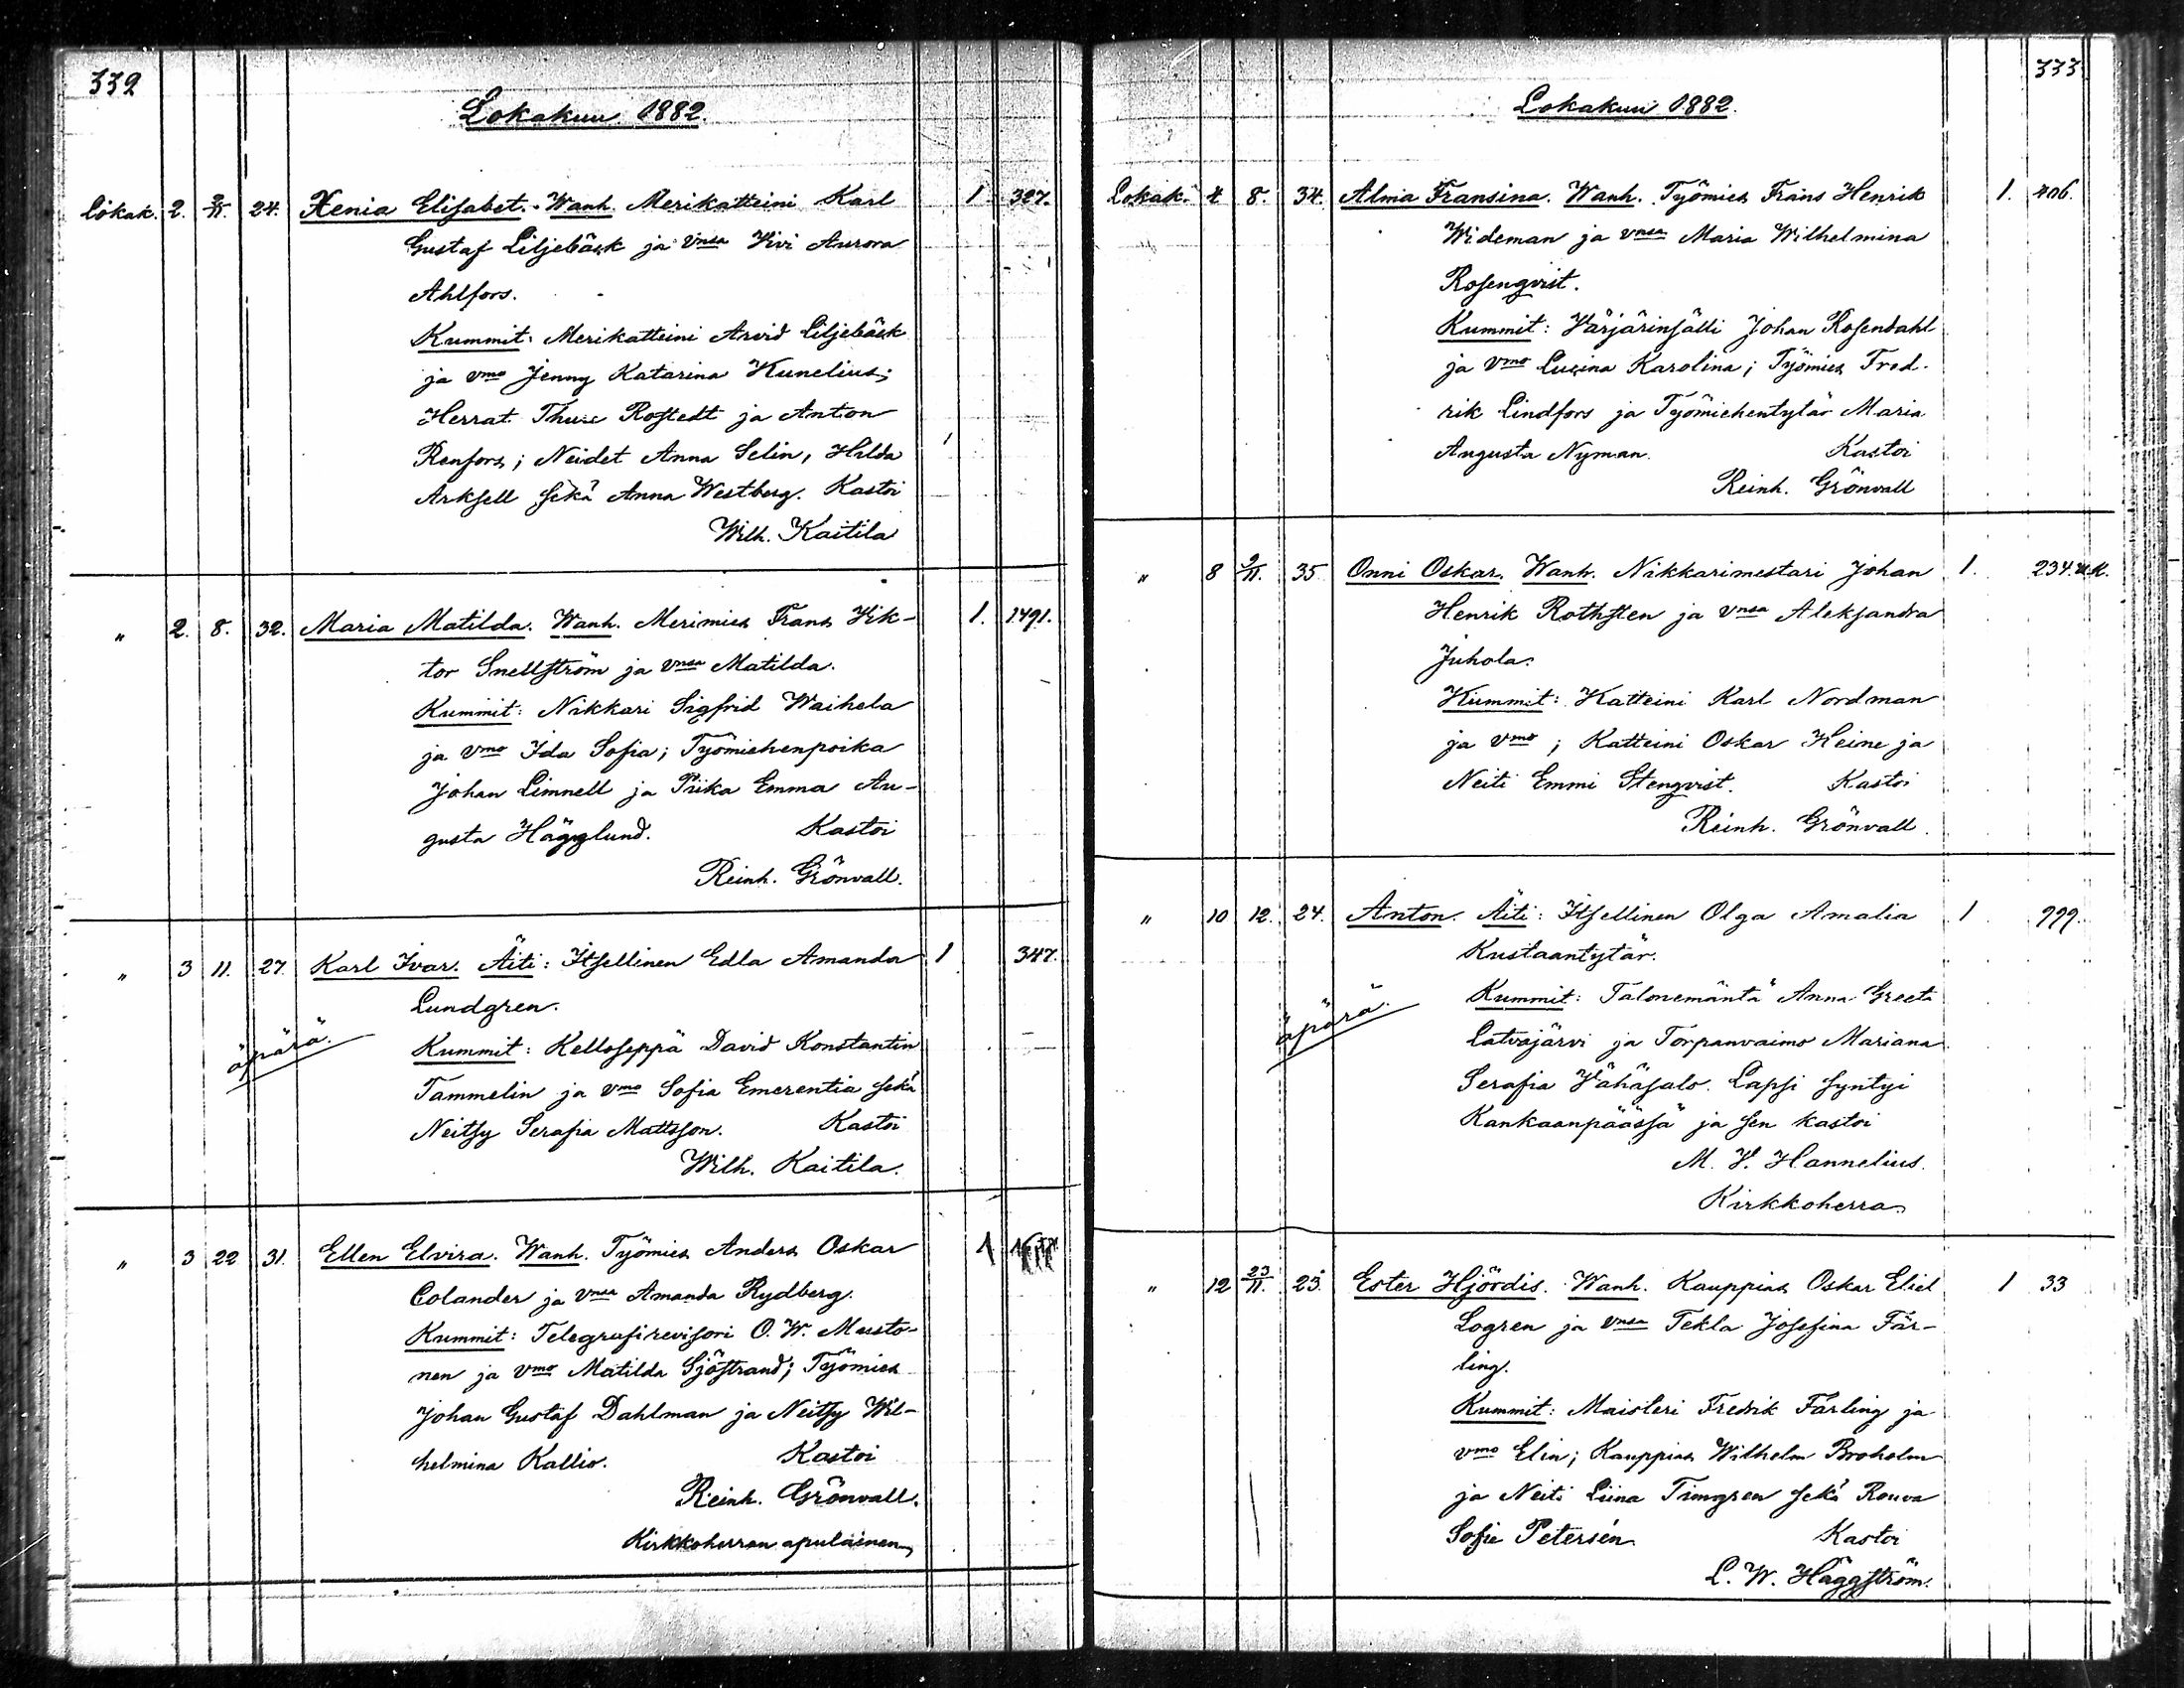 332
Lokakuu 1882.
Lokak. 2. 2/11. 24. Xenia Elisabet. Wanh. Merikatteini Karl 1 327.
Gustaf Liljebäck ja vnsa Vivi Aurora
Ahlfors.
Kummit: Merikatteini Arvid Liljebäck
ja vmo Jenny Katarina Kunelius;
Herrat Thure Rostedt ja Anton
Renfors; Neidet Anna Selin, Hilda
Arksell sekä Anna Westberg. Kastoi
Wilh. Kaitila
" 2. 8. 32. Maria Matilda. Wanh. Merimies Frans Vik- 1. 1491.
tor Snellström ja vnsa Matilda.
Kummit: Nikkari Sigfrid Waihela
ja vmo Ida Sofia; Työmiehenpoika
Johan Limnell ja Piika Emma Au-
gusta Hägglund. Kastoi
Reinh. Grönvall.
" 3 11. 27. Karl Ivar. Äiti: Itsellinen Edla Amanda 1 347.
Lundgren.
äpärä.
Kummit: Kelloseppä David Konstantin
Tammelin ja vmo Sofia Emerentia sekä
Neitsy Serafia Mattsson. Kastoi
Wilh. Kaitila.
" 3 22 31. Ellen Elvira. Wanh. Työmies Anders Oskar 1
Colander ja vnsa Amanda Rydberg.
Kummit: Telegrafirevisori O. W. Musto-
nen ja vmo Matilda Sjöstrand; Työmies
Johan Gustaf Dahlman ja Neitsy Wil-
helmina Kallio. Kastoi
Reinh. Grönvall.
Kirkkoherran apulainen
333
Lokakuu 1882.
Lokak. 4 8. 34. Alma Fransina. Wanh. Työmies Frans Henrik 1. 406.
Wideman ja vnsa Maria Wilhelmina
Rosenqvist.
Kummit: Värjärinsälli Johan Rosendahl
ja vmo Lusina Karolina; Työmies Fred-
rik Lindfors ja Työmiehentytär Maria
Augusta Nyman. Kastoi
Reinh. Grönvall
" 8 9/11. 35 Onni Oskar. Wanh. Nikkarimestari Johan 1. 234.
Henrik Rothsten ja vnsa Aleksandra
Juhola.
Kummit: Katteini Karl Nordman
ja vmo; Katteini Oskar Heine ja
Neiti Emmi Stenqvist. Kastoi
Reinh. Grönvall.
" 10 12. 24. Anton. Äiti: Itsellinen Olga Amalia 1 999.
Kustaantytär.
äpärä.
Kummit: Talonemäntä Anna Greeta
Latvajärvi ja Torpanvaimo Mariana
Serafia Vähäsalo. Lapsi syntyi
Kankaanpäässä ja sen kastoi
M. V. Hannelius.
Kirkkoherra
" 12 23/11. 23. Ester Hjördis. Wanh. Kauppias Oskar Eliel 1 33
Logren ja vnsa Tekla Josefina Fär-
ling.
Kummit: Maisteri Fredrik Färling ja
vmo Elin; Kauppias Wilhelm Broholm
ja Neiti Liina Timgren sekä Rouva
Sofie Petersén. Kastoi
L. W. Häggström.